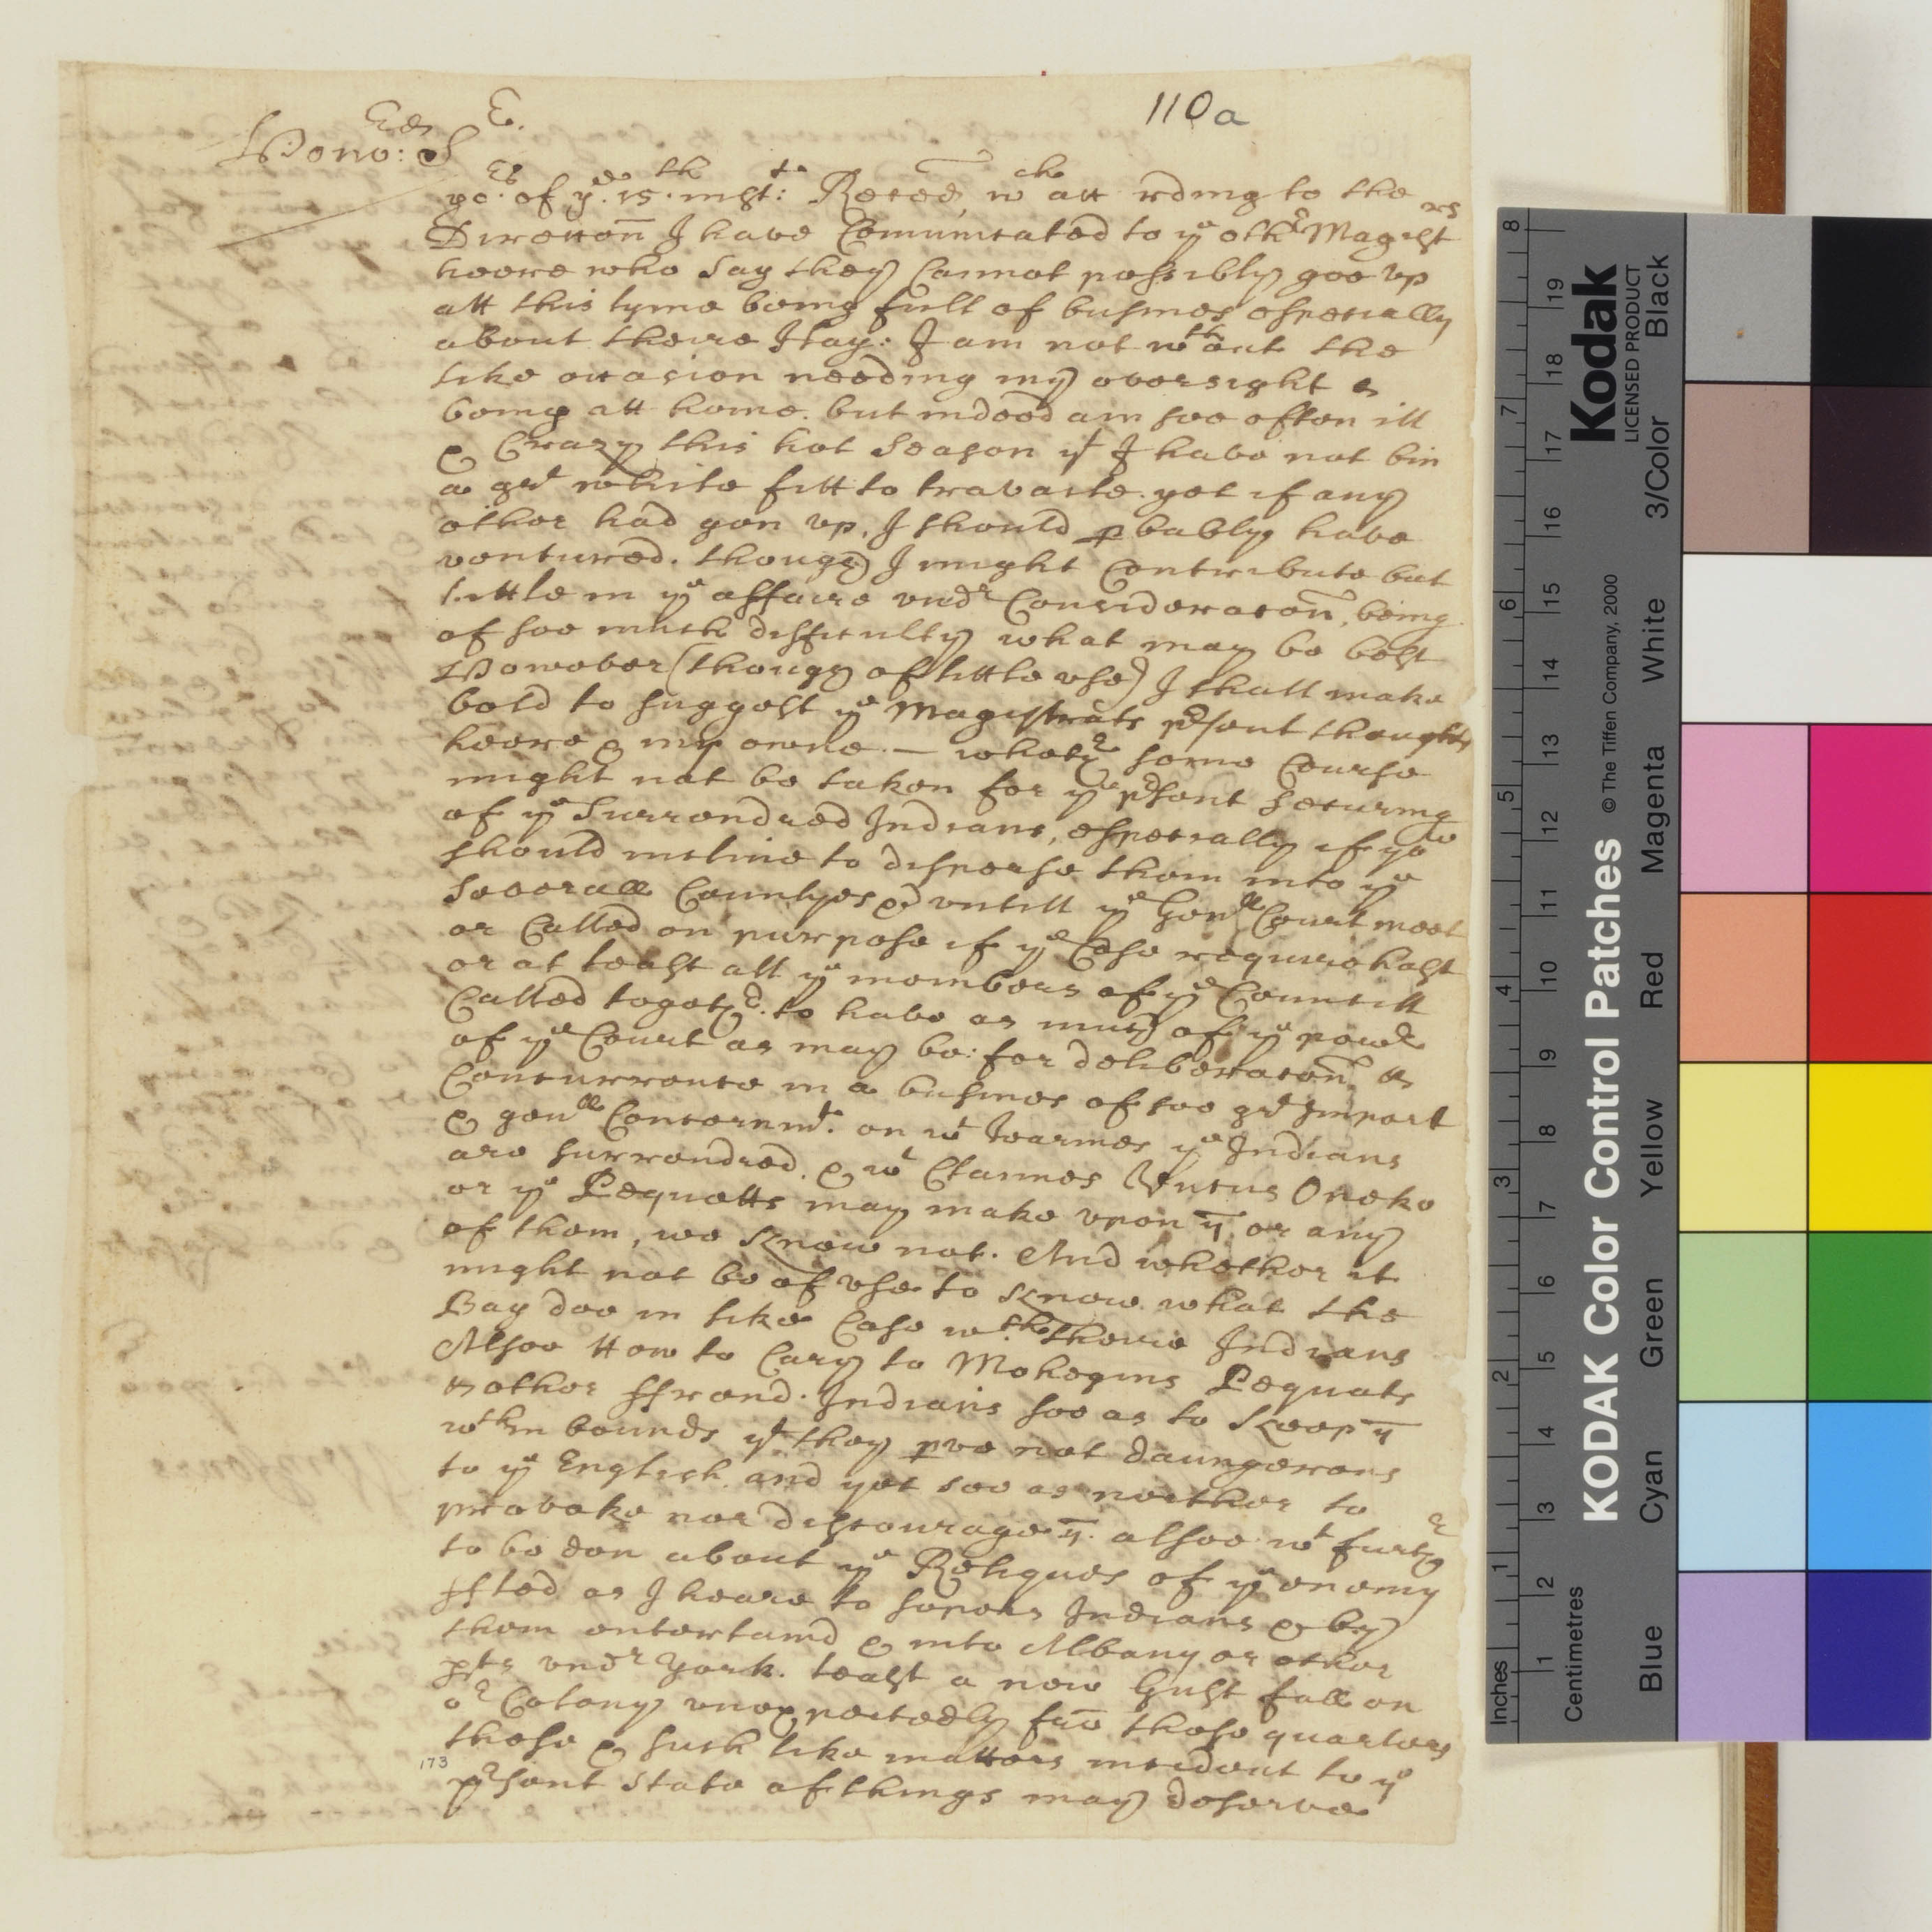 110a
Hono: Srs
yors of ye 15th inst: Reced, wch according to the
Direccon I have Comunicated to ye othr Magistrs
heere who say they Cannot possibly goe vp
att this tyme being full of busines especially
about theire Hay: I am not wthout the
like occasion needing my oversight &
being att home. but indeed am soe often ill
& Crazy this hot season yt I have not bin
a grt while fitt to travaile. yet if any
other had gon vp, I should pbably have
ventured. though I might Contribute but
little in ye affaire vndr Consideracon, being
of soe much difficulty what may be best
However (though of little vse) I shall make
bold to suggest ye Magistrats prsent thoughts
heere & my owne. — whethr some Course
might not be taken for ye prsent securing
of ye Surrendred Indians, especially if you
should incline to disperse them into ye
severall Countyes &c vntill ye Genll Court meet
or Called on purpose if ye Case require hast
or at least all ye members of ye Councill
Called togethr. to have as much of ye powr
of ye Court as may be: for deliberacon &
Concurrence in a busines of soe grt Import
& genll Concernmt. on wt tearmes ye Indians
are surrendred. & wt Claimes Vncus Oneko
or ye Pequotts may make vpon ym or any
of them, we know not. And whether it
might not be of vse to know what the
Bay doe in like Case wth theire Indians
Alsoe How to Cary to Mohegins Pequats
& other ffrend. Indians soe as to keep ym
wthin bounds yt they pve not daungerous
to ye English and yet soe as neither to
provoke nor discourage ym. alsoe wt furthr
to be don about ye Reliques of ye enemy
ffled as I heare to Indians & by
them entertaind & into Albany or other
pts vndr York. least a new Gust fall on
or Colony vnexpectedly frō those quarters
these & such like matters incident to ye
173
prsent state of things may deserve
KODAK Color Control Patches © The Tiffen Company, 2000
Kodak
LICENSED PRODUCT
Inches 1 2 3 4 5 6 7 8
Centimetres 1 2 3 4 5 6 7 8 9 10 11 12 13 14 15 16 17 18 19
Blue Cyan Green Yellow Red Magenta White 3/Color Black